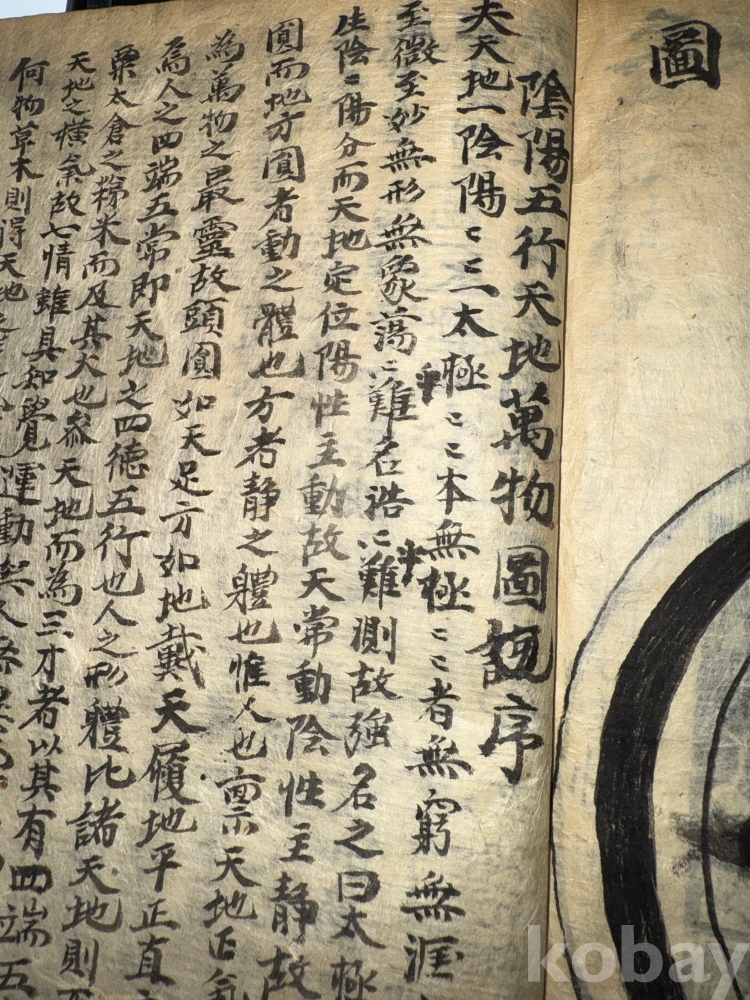 圖
陰陽五行天地萬物圖說序
夫天地一陰陽〻〻一太極〻〻本無極〻〻者無窮無涯
至微至妙無形無象蕩〻難名浩〻難測故強名之曰太極
生陰〻陽分而天地定位陽性主動故天常動陰性主靜故
圓而地方圓者動之體也方者静之軆也惟人也禀天地正氣
為萬物之最靈故頭圓如天足方如地戴天履地平正直
焉人之四端五常即天地之四德五行也人之形軆比諸天地則
粟太倉之稊米而及其大也參天地而為三才者以其有四端五
天地之橫氣故七情雖具知覺運動
何物草木則得天地之
kobay